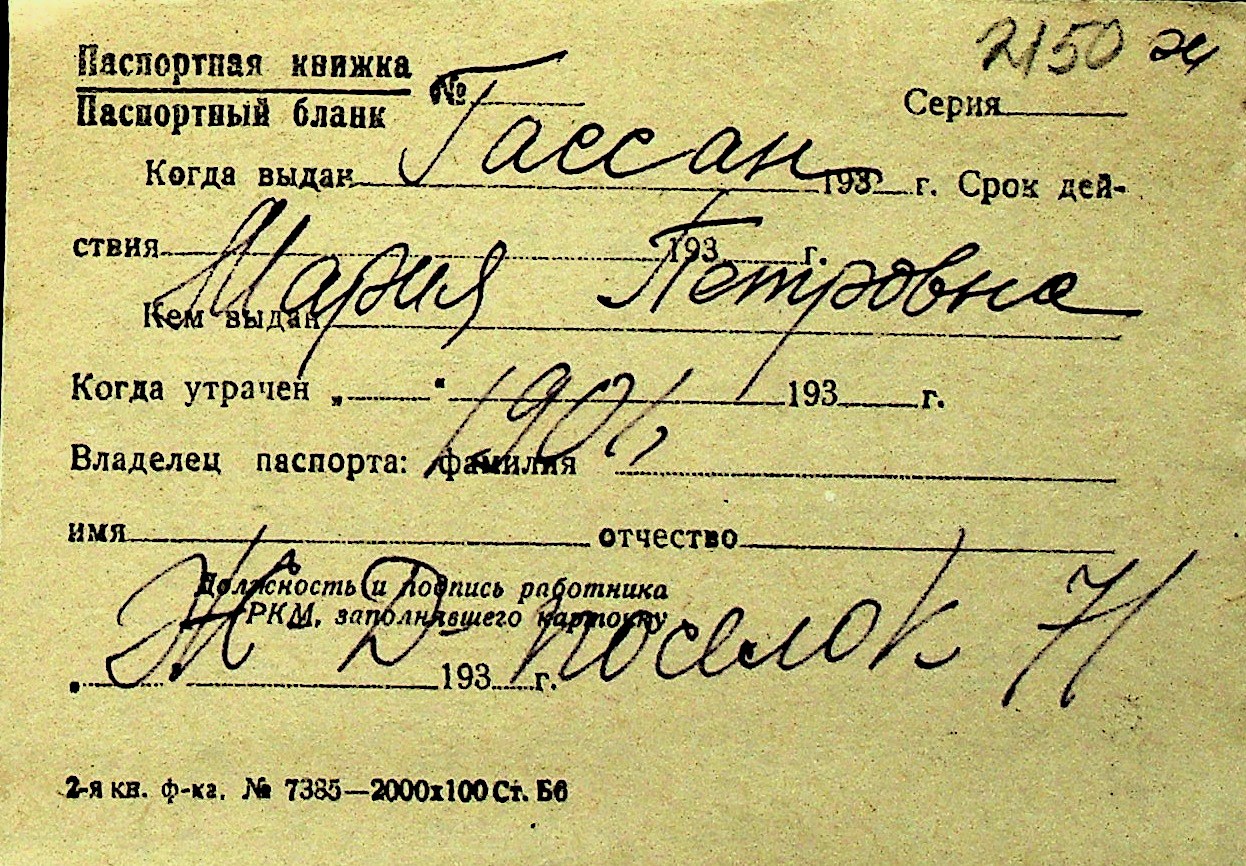 2150 ж
Паспортная книжка
Паспортный бланк
№ Серия
Гассан
Когда выдан 193 г. Срок дей-
ствия 193 г.
Мария Петровна
Кем выдан
Когда утрачен „ “ 193 г.
1901
Владелец паспорта: фамилия
имя отчество
Должность и подпись работника
РКМ, заполнявшего карточку
Ж-Д поселок
„ 193 г.
2-я кв. ф-ка. № 7385—2000х100 Ст. Бб